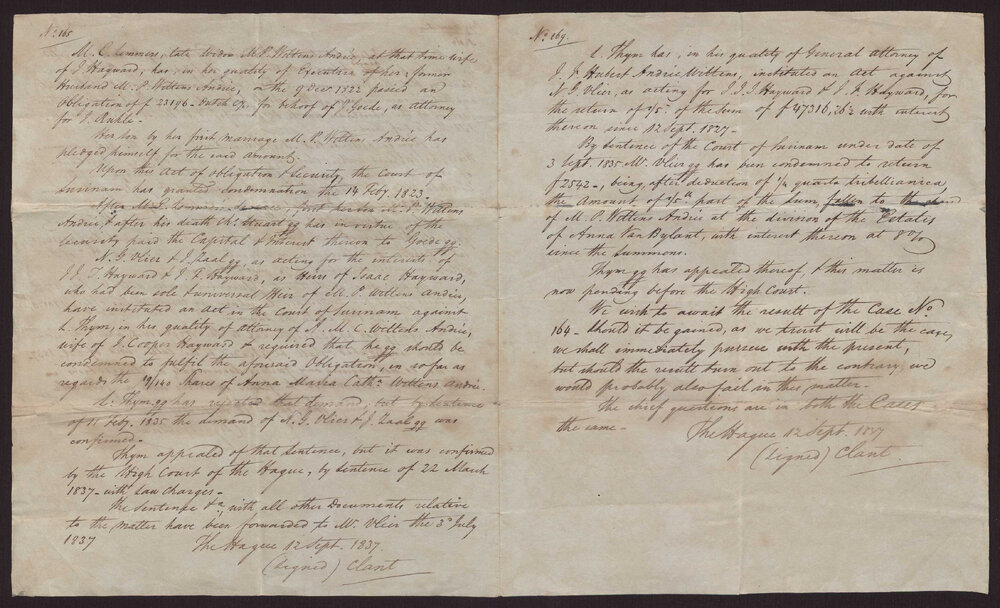 No. 165
M. C. Lemmers, late Widow M. P. Wittens Andrée, at that time wife
of J. Hayward, has, in her quality of Executrix of her former
Husband M. P. Wittens Andrée, on the 9 Decr 1822 passed an
Obligation of f 23196 - Dutch Cy. for behoof of J. Goede, as attorney
for J. Ruhle -
Her son by her first marriage M. P. Wittens Andrée has
pledged himself for the said amount.
Upon this Act of obligation & Security, the Court of
Surinam has granted Condemnation the 14 Feby 1823
After M. C. Lemmers first her son M. P. Wittens
Andrée & after his death Ch. Stuart qq has in virtue of the
Security paid the Capital & Interest thereon to Goede qq.
N. G. Vlier & J. Zaal qq, as acting for the interests of
J. J. T. Hayward & J. F. Hayward, as Heirs of Isaac Hayward,
who had been sole & universal Heir of M. P. Wittens Andrée,
have instituted an Act in the Court of Surinam against
L. Thym, in his quality of attorney of N. M. C. Wittens Andrée,
wife of J. Cooper Hayward & required that he qq should be
condemned to fulfil the aforesaid Obligation, in so far as
regards the /140 Shares of Anna Maria Cath. Wittens Andrée
L. Thym qq has repeated that demand, but by Sentence
of 15 Feby. 1835 the demand of N. G. Vlier & J. Zaal qq was
confirmed -
Thym appealed of that Sentence, but it was confirmed
by the High Court of the Hague, by sentence of 22 March
1837 - with Law Charges -
The Sentence &a. with all other Documents relative
to the matter have been forwarded to Mr. Vlier the 3d July
1837
The Hague 12 Sept. 1837.
(signed) Clant
No. 169.
L. Thym has, in his quality of General Attorney of
J. F. Hubert Andrée Wittens, instituted an Act against
N. G. Vlier, as acting for J. J. T. Hayward & J. F. Hayward, for
the return of 1/5 of the Sum of f 47316,26½ with interest
thereon since 12 Sept. 1827 -
By Sentence of the Court of Surinam under date of
3 Sept. 1835 Mr. Vlier qq has been condemned to return
f 2542 -, being, after deduction of 1/4 quarta tribellianica,
the Amount of 1/5 part of the Sum, fallen to the share
of M. P. Wittens Andrée at the division of the Estates
of Anna Van Bylant, with interest thereon at 8%
since the summons.
Thym qq has appealed thereof, & this matter is
now pending before the High Court.
We wish to await the result of the Case No
164 - should it be gained, as we trust will be the case,
we shall immediately pursue with the present,
but should the result turn out to the contrary, we
would probably also fail in this matter.
The chief questions are in both the Cases
the same -
The Hague 12 Sept. 1837
(signed) Clant.